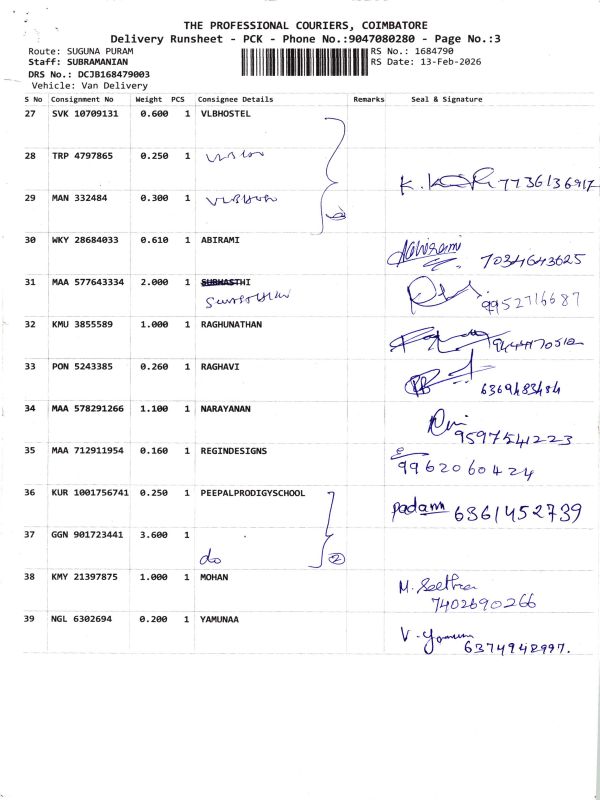 THE PROFESSIONAL COURIERS, COIMBATORE
Delivery Runsheet - PCK - Phone No.:9047080280 - Page No.:3
Route: SUGUNA PURAM RS No.: 1684790
Staff: SUBRAMANIAN RS Date: 13-Feb-2026
DRS No.: DCJB168479003
Vehicle: Van Delivery
S No Consignment No Weight PCS Consignee Details Remarks Seal & Signature
27 SVK 10709131 0.600 1 VLBHOSTEL
28 TRP 4797865 0.250 1
29 MAN 332484 0.300 1 K. 7736136917
30 WKY 28684033 0.610 1 ABIRAMI Abirami 7034643625
31 MAA 577643334 2.000 1 SUBHASTHI 9952716687
32 KMU 3855589 1.000 1 RAGHUNATHAN
33 PON 5243385 0.260 1 RAGHAVI 6369483484
34 MAA 578291266 1.100 1 NARAYANAN 9597541223
35 MAA 712911954 0.160 1 REGINDESIGNS 9962060424
36 KUR 1001756741 0.250 1 PEEPALPRODIGYSCHOOL Padam 6361452739
37 GGN 901723441 3.600 1
do 2
38 KMY 21397875 1.000 1 MOHAN M. Seetha
7402690266
39 NGL 6302694 0.200 1 YAMUNAA V. Yamuna
6374948997.